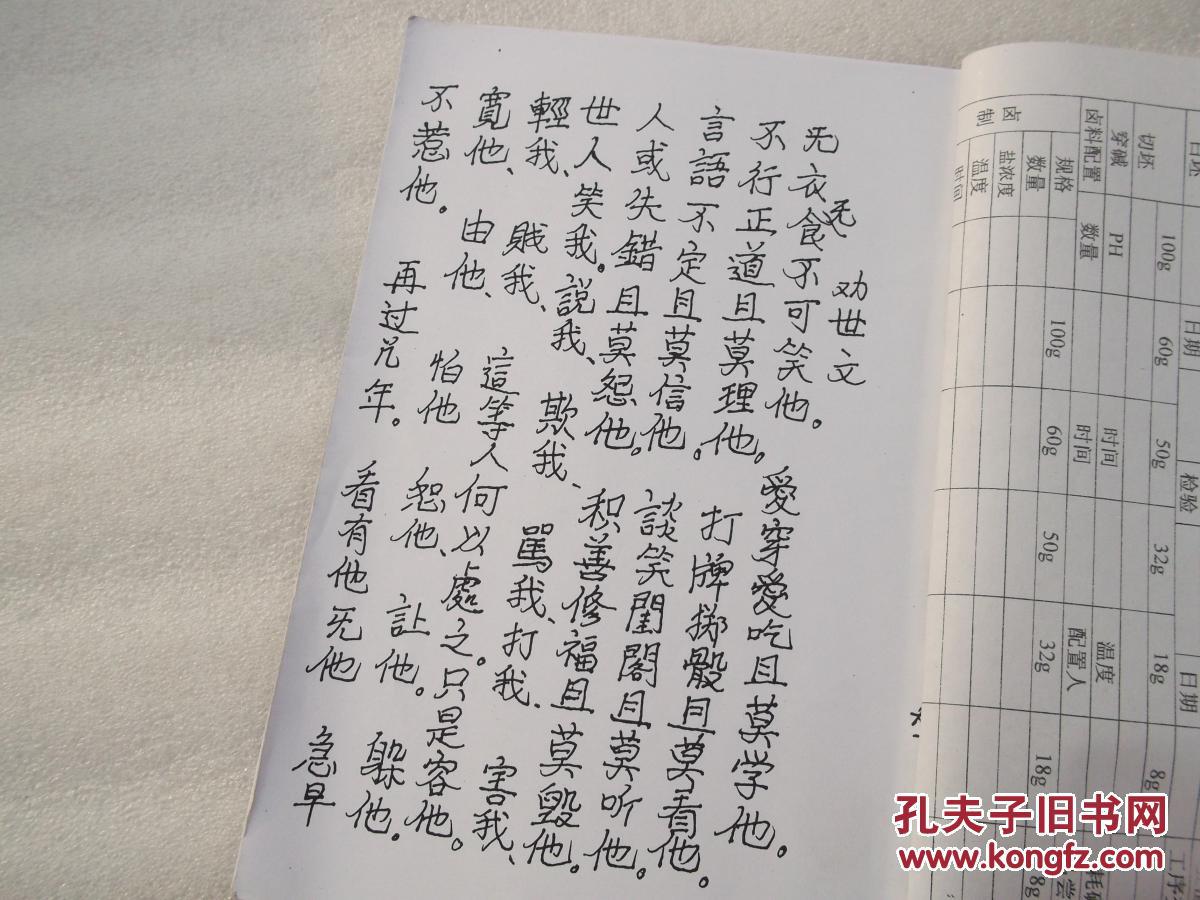 劝世文
旡
旡衣食不可笑他。愛穿愛吃且莫学他。
不行正道且莫理他。打牌掷骰且莫看他。
言語不定且莫信他。談笑閨閣且莫听他。
人或失錯且莫怨他。积善修福且莫毀他。
世人笑我。説我、欺我、罵我、打我、害我、
輕我、賎我、這等人何以處之。只是容他。
寬他、由他、怕他 恕他、让他。躲他。
不惹他。再过几年。看有他旡他 急早
切坯 100g 60g 50g 32g 18g 8g
日期 检验 日期
穿碱 PH 时间 温度
卤料配置 数量 时间 配置人
规格 100g 60g 50g 32g 18g
数量
盐浓度
温度
时间
卤制
工序
孔夫子旧书网
www.kongfz.com